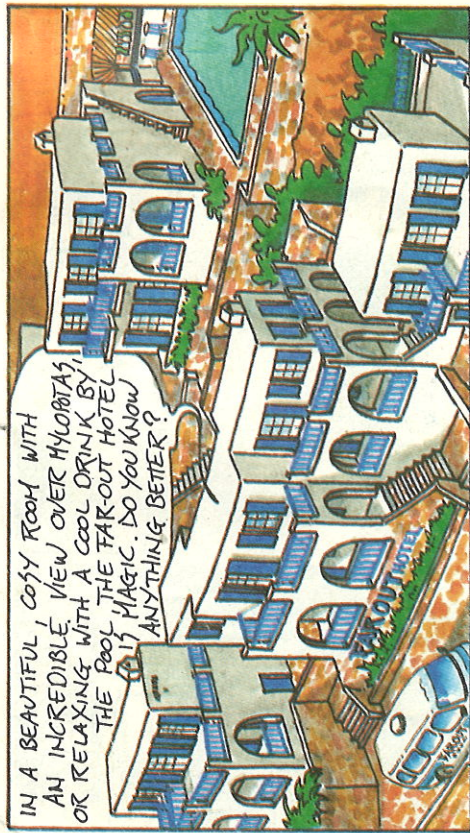 IN A BEAUTIFUL, COSY ROOM WITH
AN INCREDIBLE VIEW OVER MYLOPOTAS,
OR RELAXING WITH A COOL DRINK BY
THE POOL THE FAR-OUT HOTEL
IS MAGIC. DO YOU KNOW
ANYTHING BETTER?
FAR OUT HOTEL
FAR OUT